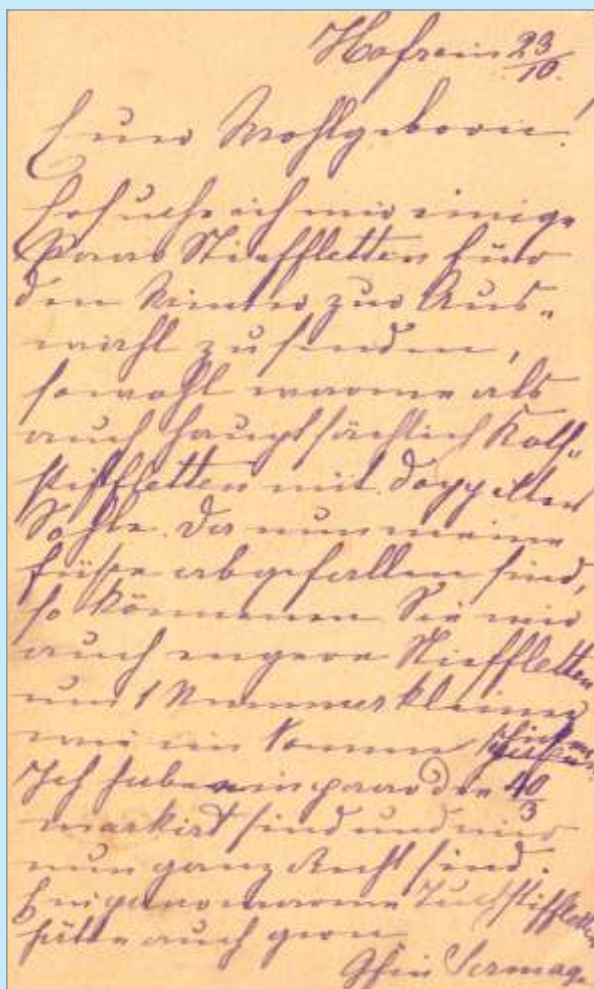 Hofrain 23/10.
Euer Wohlgeborn.
Ersuche ich mir einige
Paar Stieffletten für
den Winter zur Aus-
wahl zu senden,
sowohl warme als
auch hauptsächlich Kalb-
stieffletten mit doppelter
Sohle. Da nun meine
Füße abgefallen sind,
so könnenen Sie mir
auch engere Stieffletten
um 1 Nummer kleiner
wie im Sommer
Ich habe ein paar die 40/3
markirt sind und mir
nun ganz Recht sind.
Ein paar warme Tuchstiffletten
hätte auch gern
Gfin Sermage